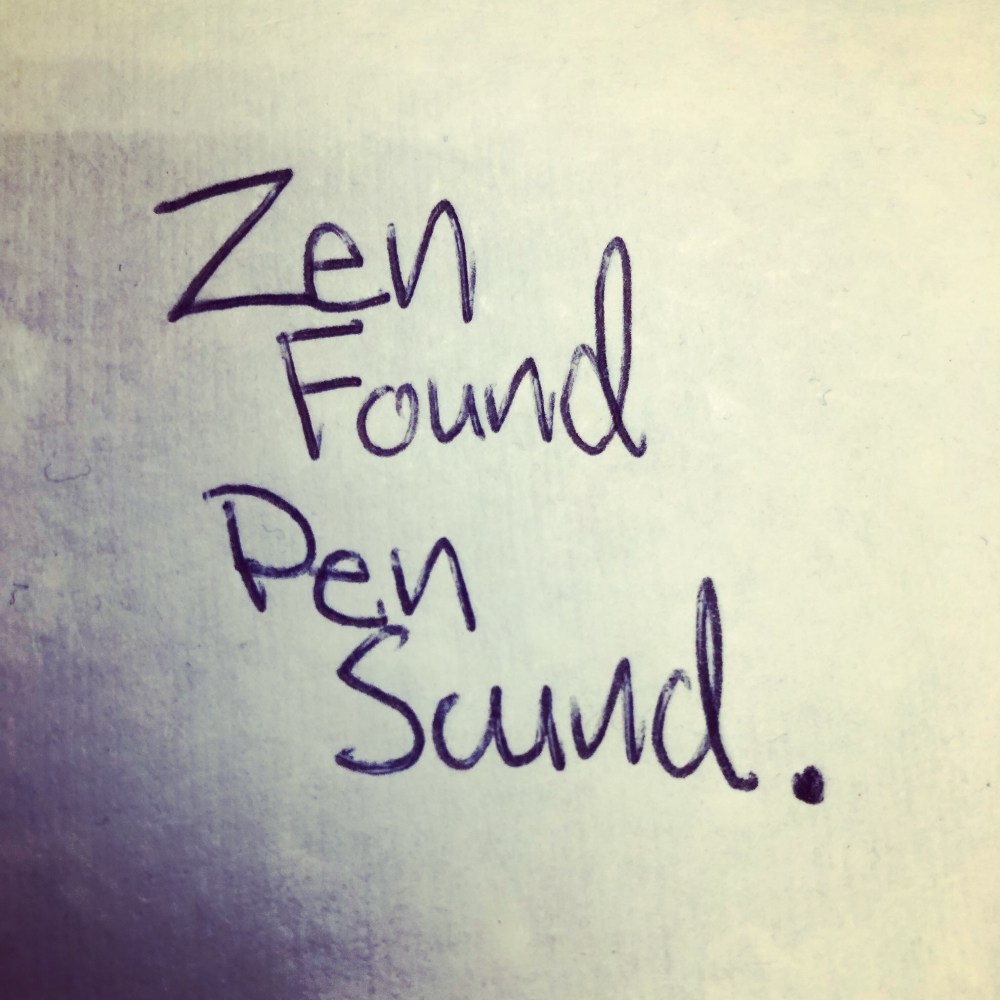 Zen
Found
Pen
Sound.